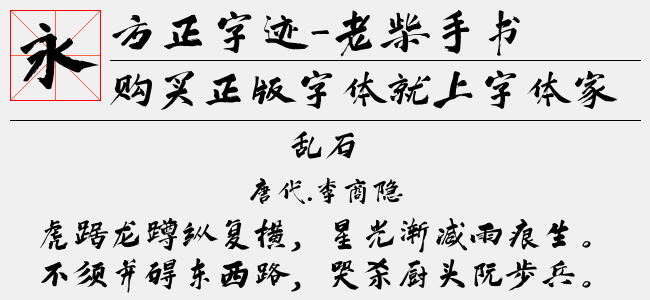 永
方正字迹-老柴手书
购买正版字体就上字体家
乱石
唐代.李商隐
虎踞龙蹲纵复横，星光渐减雨痕生。
不须并碍东西路，哭杀厨头阮步兵。